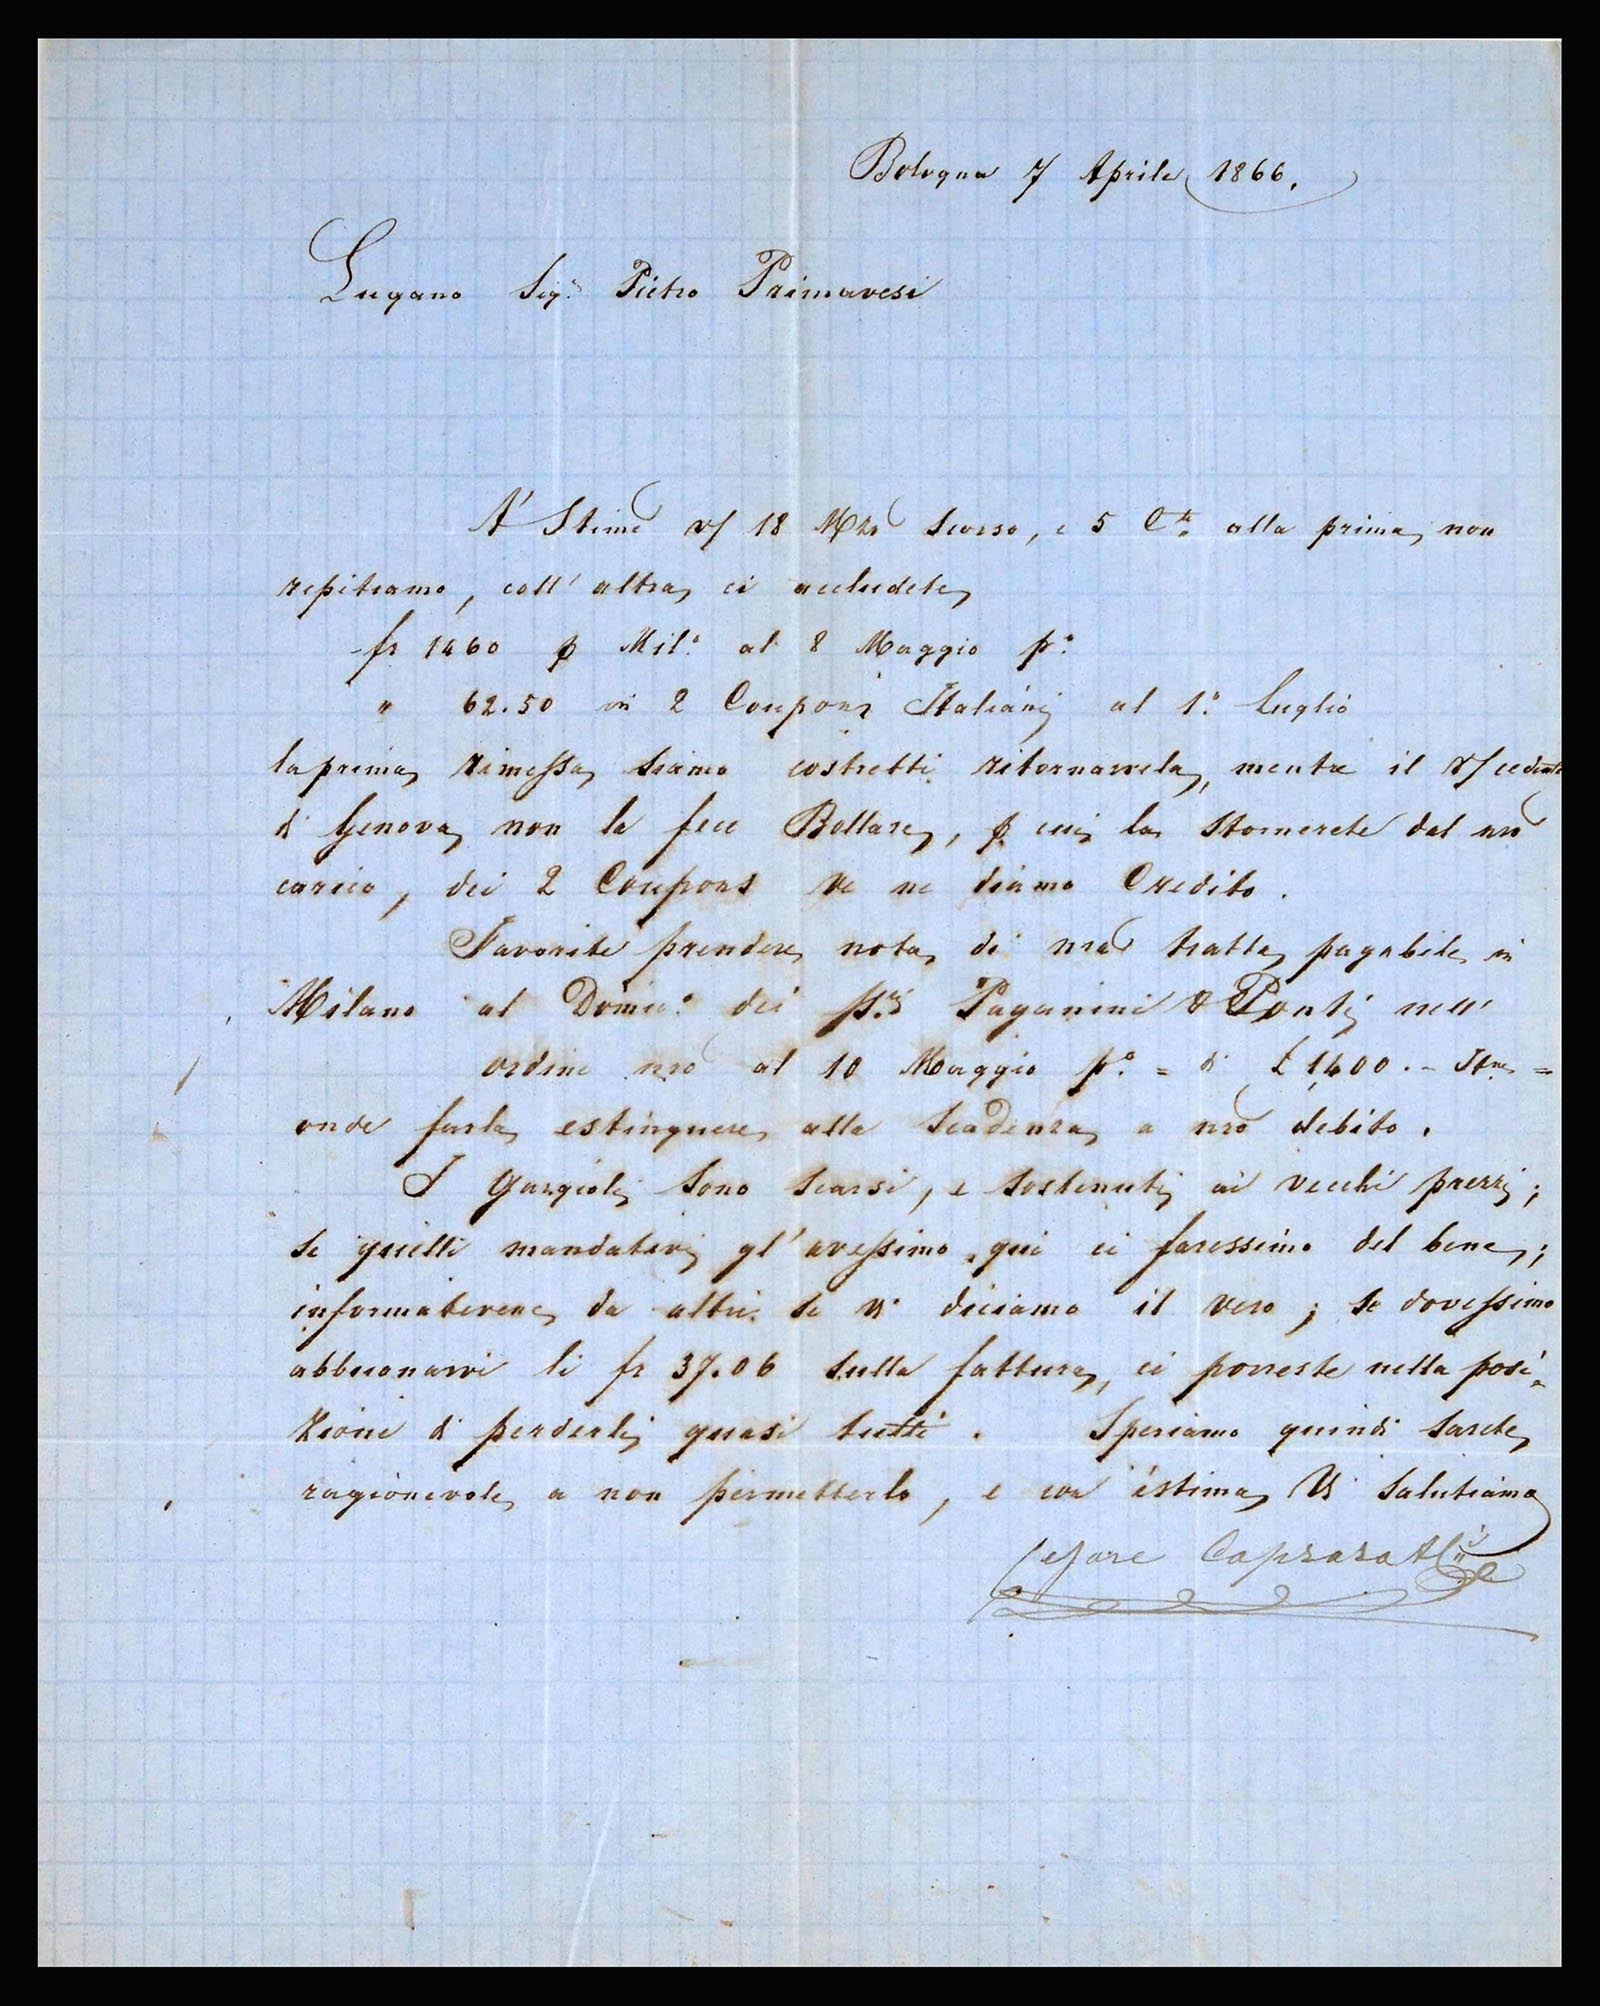 Bologna 7 Aprile 1866.
Lugano Sigr Pietro Primavesi
A' Stime v/ 18 Mzo scorso, e 5 Cte alla prima non
repitiamo, coll' altra ci accludete
fr 1460 p Mil.o al 8 Maggio p.o
" 62.50 in 2 Couponi Italiani al 1.o Luglio
la prima rimessa siamo costretti ritornarvela, mentre il v/ cedente
di Genova non la fece Bollare, p cui la stornerete dal nro
carico, dei 2 Coupons ve ne diamo Credito.
Favorite prendere nota di nra tratta pagabile in
Milano al Domic.o dei SS.ri Paganini & Ponti nell'
ordine nro al 10 Maggio p.o = di £ 1400.- Itne =
onde farla estinguere alla scadenza a nro debito.
I Gargioli sono scarsi, e sostenuti ai vecchi prezzi;
se quelli mandativi gl' avessimo qui ci faressimo del bene;
informatevene da altri se Vi diciamo il vero; se dovessimo
abbuonarvi li fr 37.06 sulla fattura, ci porreste nella posi=
zione di perderli quasi tutti. Speriamo quindi sarete
ragionevole a non permetterlo, e con istima Vi salutiamo
Cesare Caprara